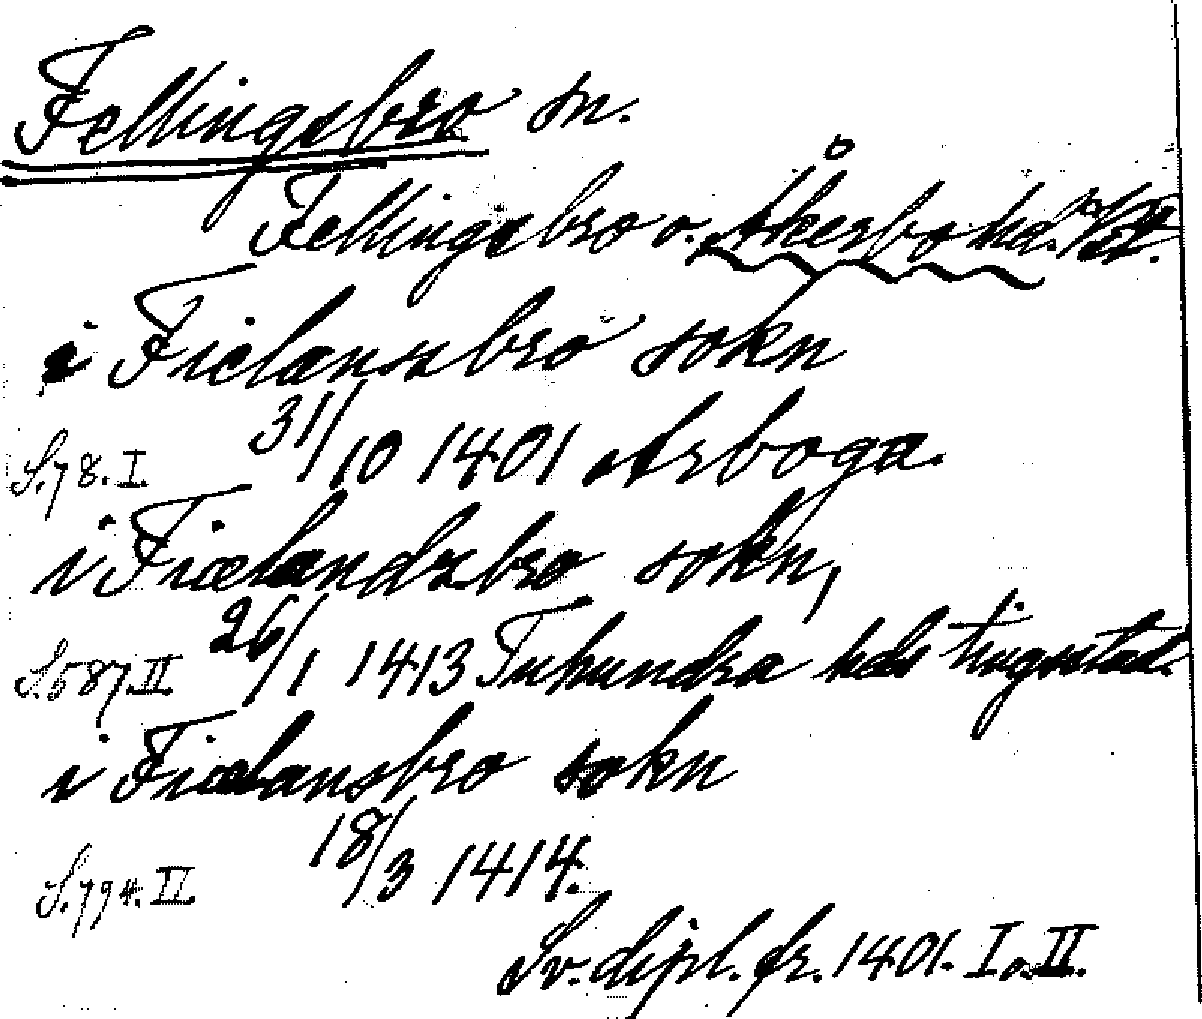 Fellingsbro sn.
Fellingsbro o. Åkerbo hd.
i Fielansbro sokn
S. 78. I. 31/10 1401 Arboga.
i Fiælandzbro sokn,
S. 587. II 26/1 1413 Tuhundra hds tingstad.
i Fiælansbro sokn
S. 794. II. 18/3 1414.
Sv. dipl. fr. 1401. I o. II.